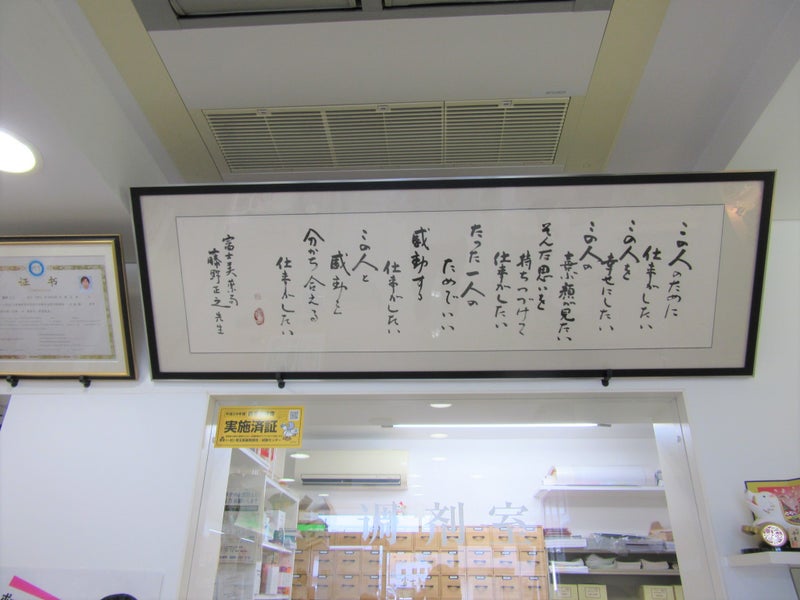 この人のために
仕事がしたい
この人を
幸せにしたい
この人の
喜ぶ顔が見たい
そんな思いを
持ちつづけて
仕事がしたい
たった一人の
ためでいい
感動する
仕事がしたい
この人と
感動を
分かち合える
仕事がしたい
富士美薬局
藤野正之先生
证书
実施済証
调剂室